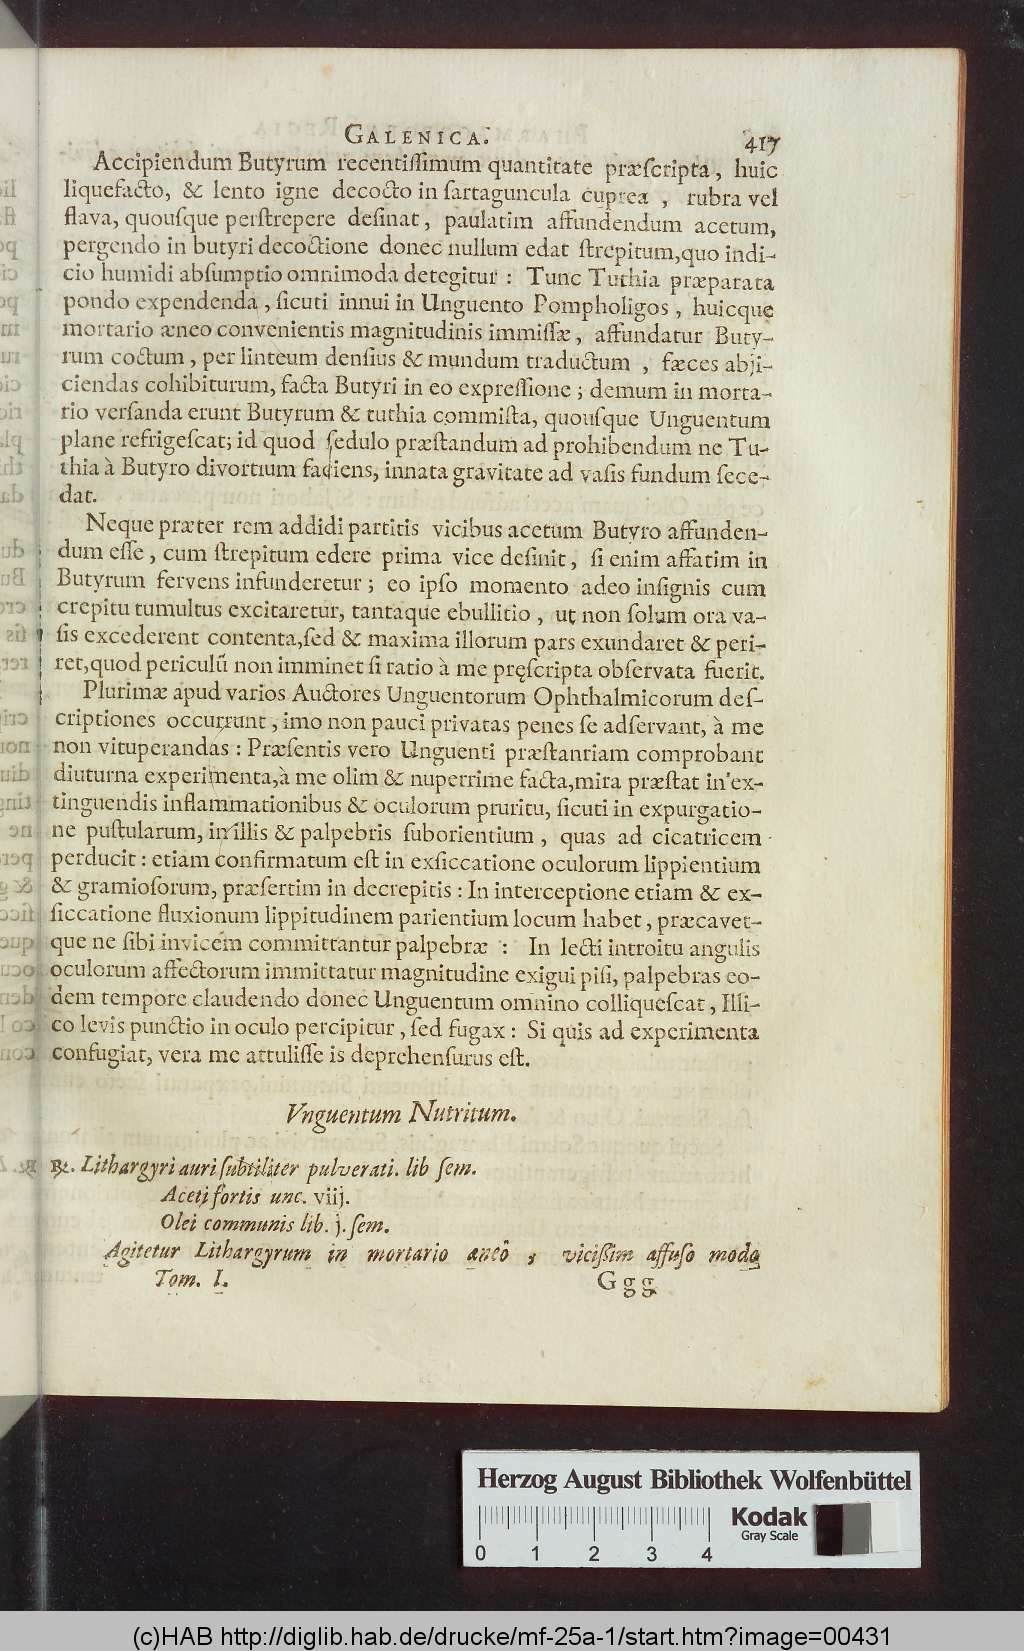 GALENICA. 417
Accipiendum Butyrum recentiſſimum quantitate præſcripta, huic
liquefacto, & lento igne decocto in ſartaguncula cuprea, rubra vel
flava, quouſque perſtrepere deſinat, paulatim affundendum acetum,
pergendo in butyri decoctione donec nullum edat ſtrepitum,quo indi-
cio humidi abſumptio omnimoda detegitur: Tunc Tuthia præparata
pondo expendenda, ſicuti innui in Unguento Pompholigos, huicque
mortario æneo convenientis magnitudinis immiſſæ, affundatur Buty-
rum coctum, per linteum denſius & mundum traductum, fæces abji-
ciendas cohibiturum, facta Butyri in eo expreſſione; demum in morta-
rio verſanda erunt Butyrum & tuthia commiſta, quouſque Unguentum
plane refrigeſcat; id quod ſedulo præſtandum ad prohibendum ne Tu-
thia à Butyro divortium faciens, innata gravitate ad vaſis fundum ſece-
dat.
Neque præter rem addidi partitis vicibus acetum Butyro affunden-
dum eſſe, cum ſtrepitum edere prima vice deſinit, ſi enim affatim in
Butyrum fervens infunderetur; eo ipſo momento adeo inſignis cum
crepitu tumultus excitaretur, tantaque ebullitio, ut non ſolum ora va-
ſis excederent contenta,ſed & maxima illorum pars exundaret & peri-
ret,quod periculũ non imminet ſi ratio à me pręſcripta obſervata fuerit.
Plurimæ apud varios Auctores Unguentorum Ophthalmicorum deſ-
criptiones occurrunt, imo non pauci privatas penes ſe adſervant, à me
non vituperandas: Præſentis vero Unguenti præſtantiam comprobant
diuturna experimenta,à me olim & nuperrime facta,mira præſtat in ex-
tinguendis inflammationibus & oculorum pruritu, ſicuti in expurgatio-
ne puſtularum, in illis & palpebris ſuborientium, quas ad cicatricem
perducit: etiam confirmatum eſt in exſiccatione oculorum lippientium
& gramioſorum, præſertim in decrepitis: In interceptione etiam & ex-
ſiccatione fluxionum lippitudinem parientium locum habet, præcavet-
que ne ſibi invicem committantur palpebræ: In lecti introitu angulis
oculorum affectorum immittatur magnitudine exigui piſi, palpebras eo-
dem tempore claudendo donec Unguentum omnino colliqueſcat, Illi-
co levis punctio in oculo percipitur, ſed fugax: Si quis ad experimenta
confugiat, vera me attuliſſe is deprehenſurus eſt.
Vnguentum Nutritum.
℞. Lithargyri auri ſubtiliter pulverati. lib ſem.
Aceti fortis unc. viij.
Olei communis lib. j. ſem.
Agitetur Lithargyrum in mortario æneo, viciſſim affuſo modo
Tom. I. Ggg
Herzog August Bibliothek Wolfenbüttel
Kodak
Gray Scale
0 1 2 3 4
(c)HAB http://diglib.hab.de/drucke/mf-25a-1/start.htm?image=00431